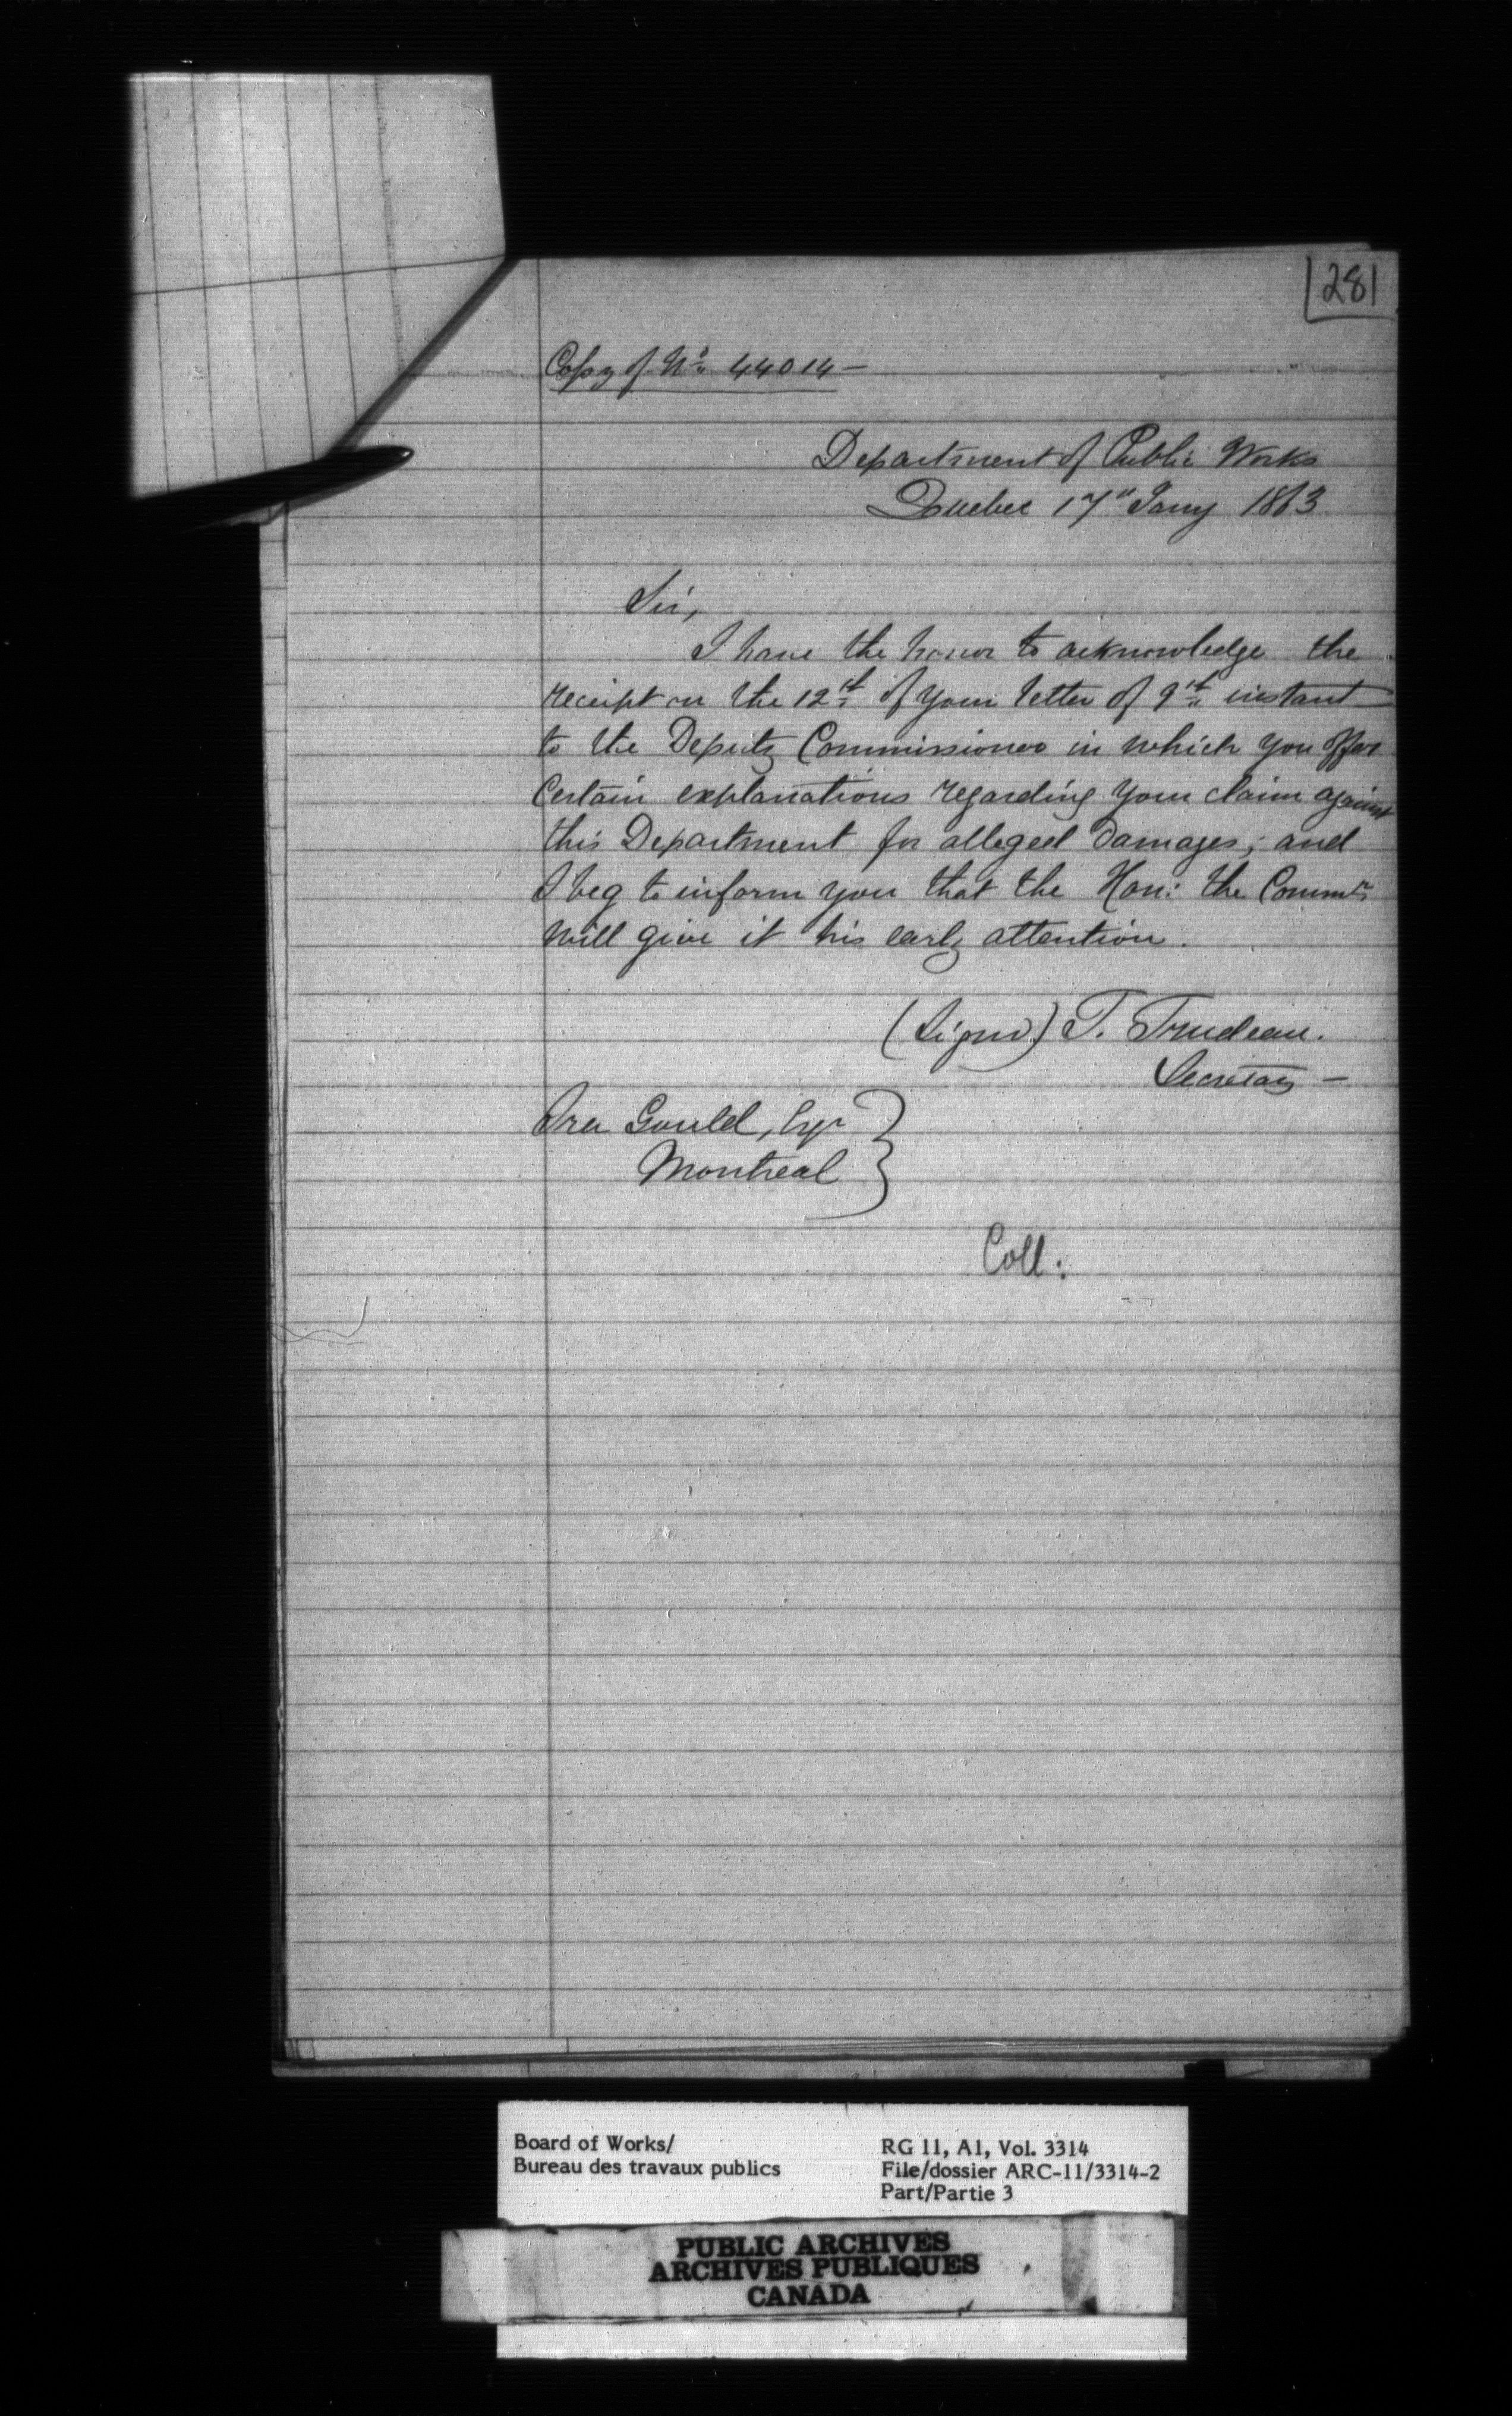 281
Copy of No. 44014 —
Department of Public Works
Quebec 17" Jany 1863
Sir,
I have the honor to acknowledge the
receipt on the 12th of your letter of 9th instant
to the Deputy Commissioner in which you offer
Certain explanations regarding your claim against
this Department for alleged Damages; and
I beg to inform you that the Hon: the Commr
will give it his early attention.
(Signd) T. Trudeau.
Secretary —
Ira Gould, Esqr
Montreal
Coll:
Board of Works/
Bureau des travaux publics
RG 11, A1, Vol. 3314
File/dossier ARC-11/3314-2
Part/Partie 3
PUBLIC ARCHIVES
ARCHIVES PUBLIQUES
CANADA